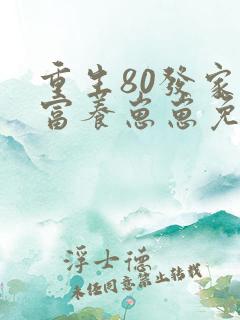 重生80發家
富養崽崽免
浮士德
未经同意禁止转载